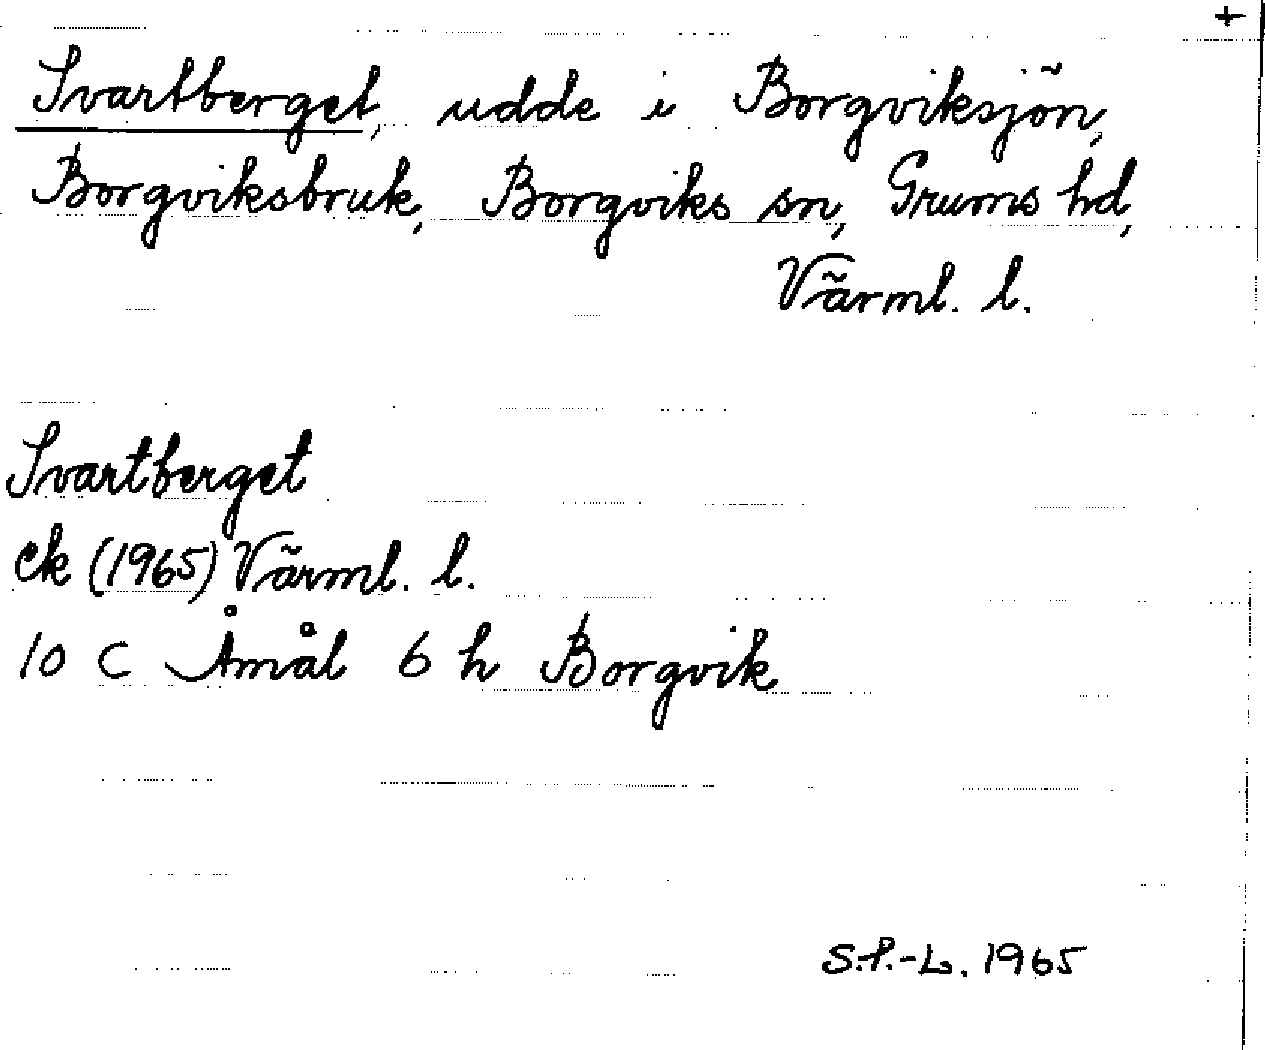 +
Svartberget, udde i Borgviksjön,
Borgviksbruk, Borgviks sn, Grums hd,
Värml. l.
Svartberget
ek (1965) Värml. l.
10 C Åmål 6 h Borgvik
S.P.-L. 1965